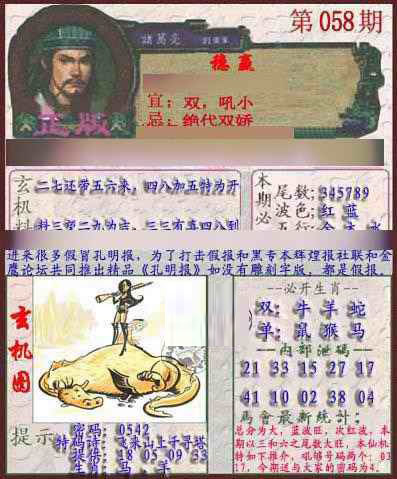 第058期
諸葛亮
稳赢
宜：双，吼小
忌：绝代双娇
正版
玄机料
二七还带五六来，四八加五特为开
本期必
尾数：345789
波色：红 蓝
进来很多假冒孔明报，为了打击假报和黑专本辉煌报社联和金
鹰论坛共同推出精品《孔明报》如没有雕刻字版，都是假报.
玄机图
--必开生肖--
双：牛 羊 蛇
单：鼠 猴 马
--内部泄码--
21 33 15 27 17
41 10 02 38 04
馬會最新統計：
总分为大，蓝波旺，次红波，本
期以三和六之尾数大旺，本仙机
特如下推介，吼够号码两个：03
17，今期送与大家的密码为4.
提示
密码：0542
特码诗：飞来山上千寻塔
提供：18 05 09 33
生肖：马，羊